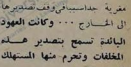 مغرية جدا سيباقى وقف تصديرها
الى الخارج ... وكانت العهود
البائدة تسمح بتصدير هذه
المخلفات وتحرم منها المستهلك